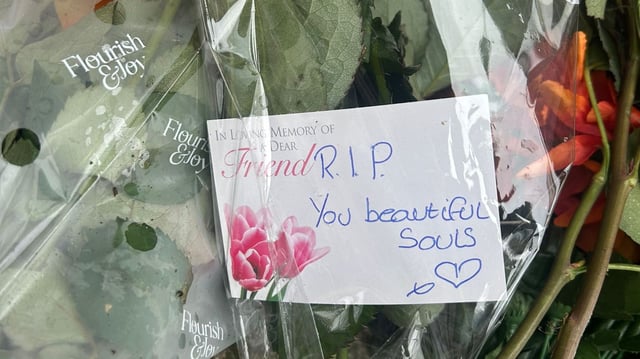 Flourish
&Joy
Flourish
&Joy
IN LOVING MEMORY OF
A DEAR
Friend
R.I.P.
You beautiful
souls
Flourish
&Joy